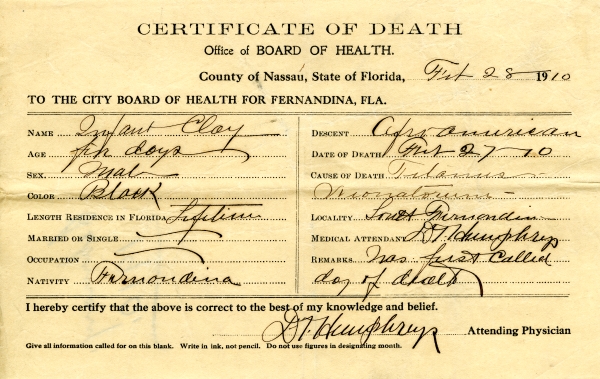 CERTIFICATE OF DEATH
Office of BOARD OF HEALTH.
County of Nassau, State of Florida, Feb 28 1910
TO THE CITY BOARD OF HEALTH FOR FERNANDINA, FLA.
NAME Infant Clay
AGE days
SEX. Male
COLOR Black
LENGTH RESIDENCE IN FLORIDA Lifetime
MARRIED OR SINGLE
OCCUPATION
NATIVITY Fernandina
DESCENT Afro american
DATE OF DEATH Feb 27-10
CAUSE OF DEATH Tetanus
Neonatorum
LOCALITY South Fernandina
MEDICAL ATTENDANT D T. Humphreys
REMARKS Was first called
day of death
I hereby certify that the above is correct to the best of my knowledge and belief.
D T. Humphreys Attending Physician
Give all information called for on this blank. Write in ink, not pencil. Do not use figures in designating month.